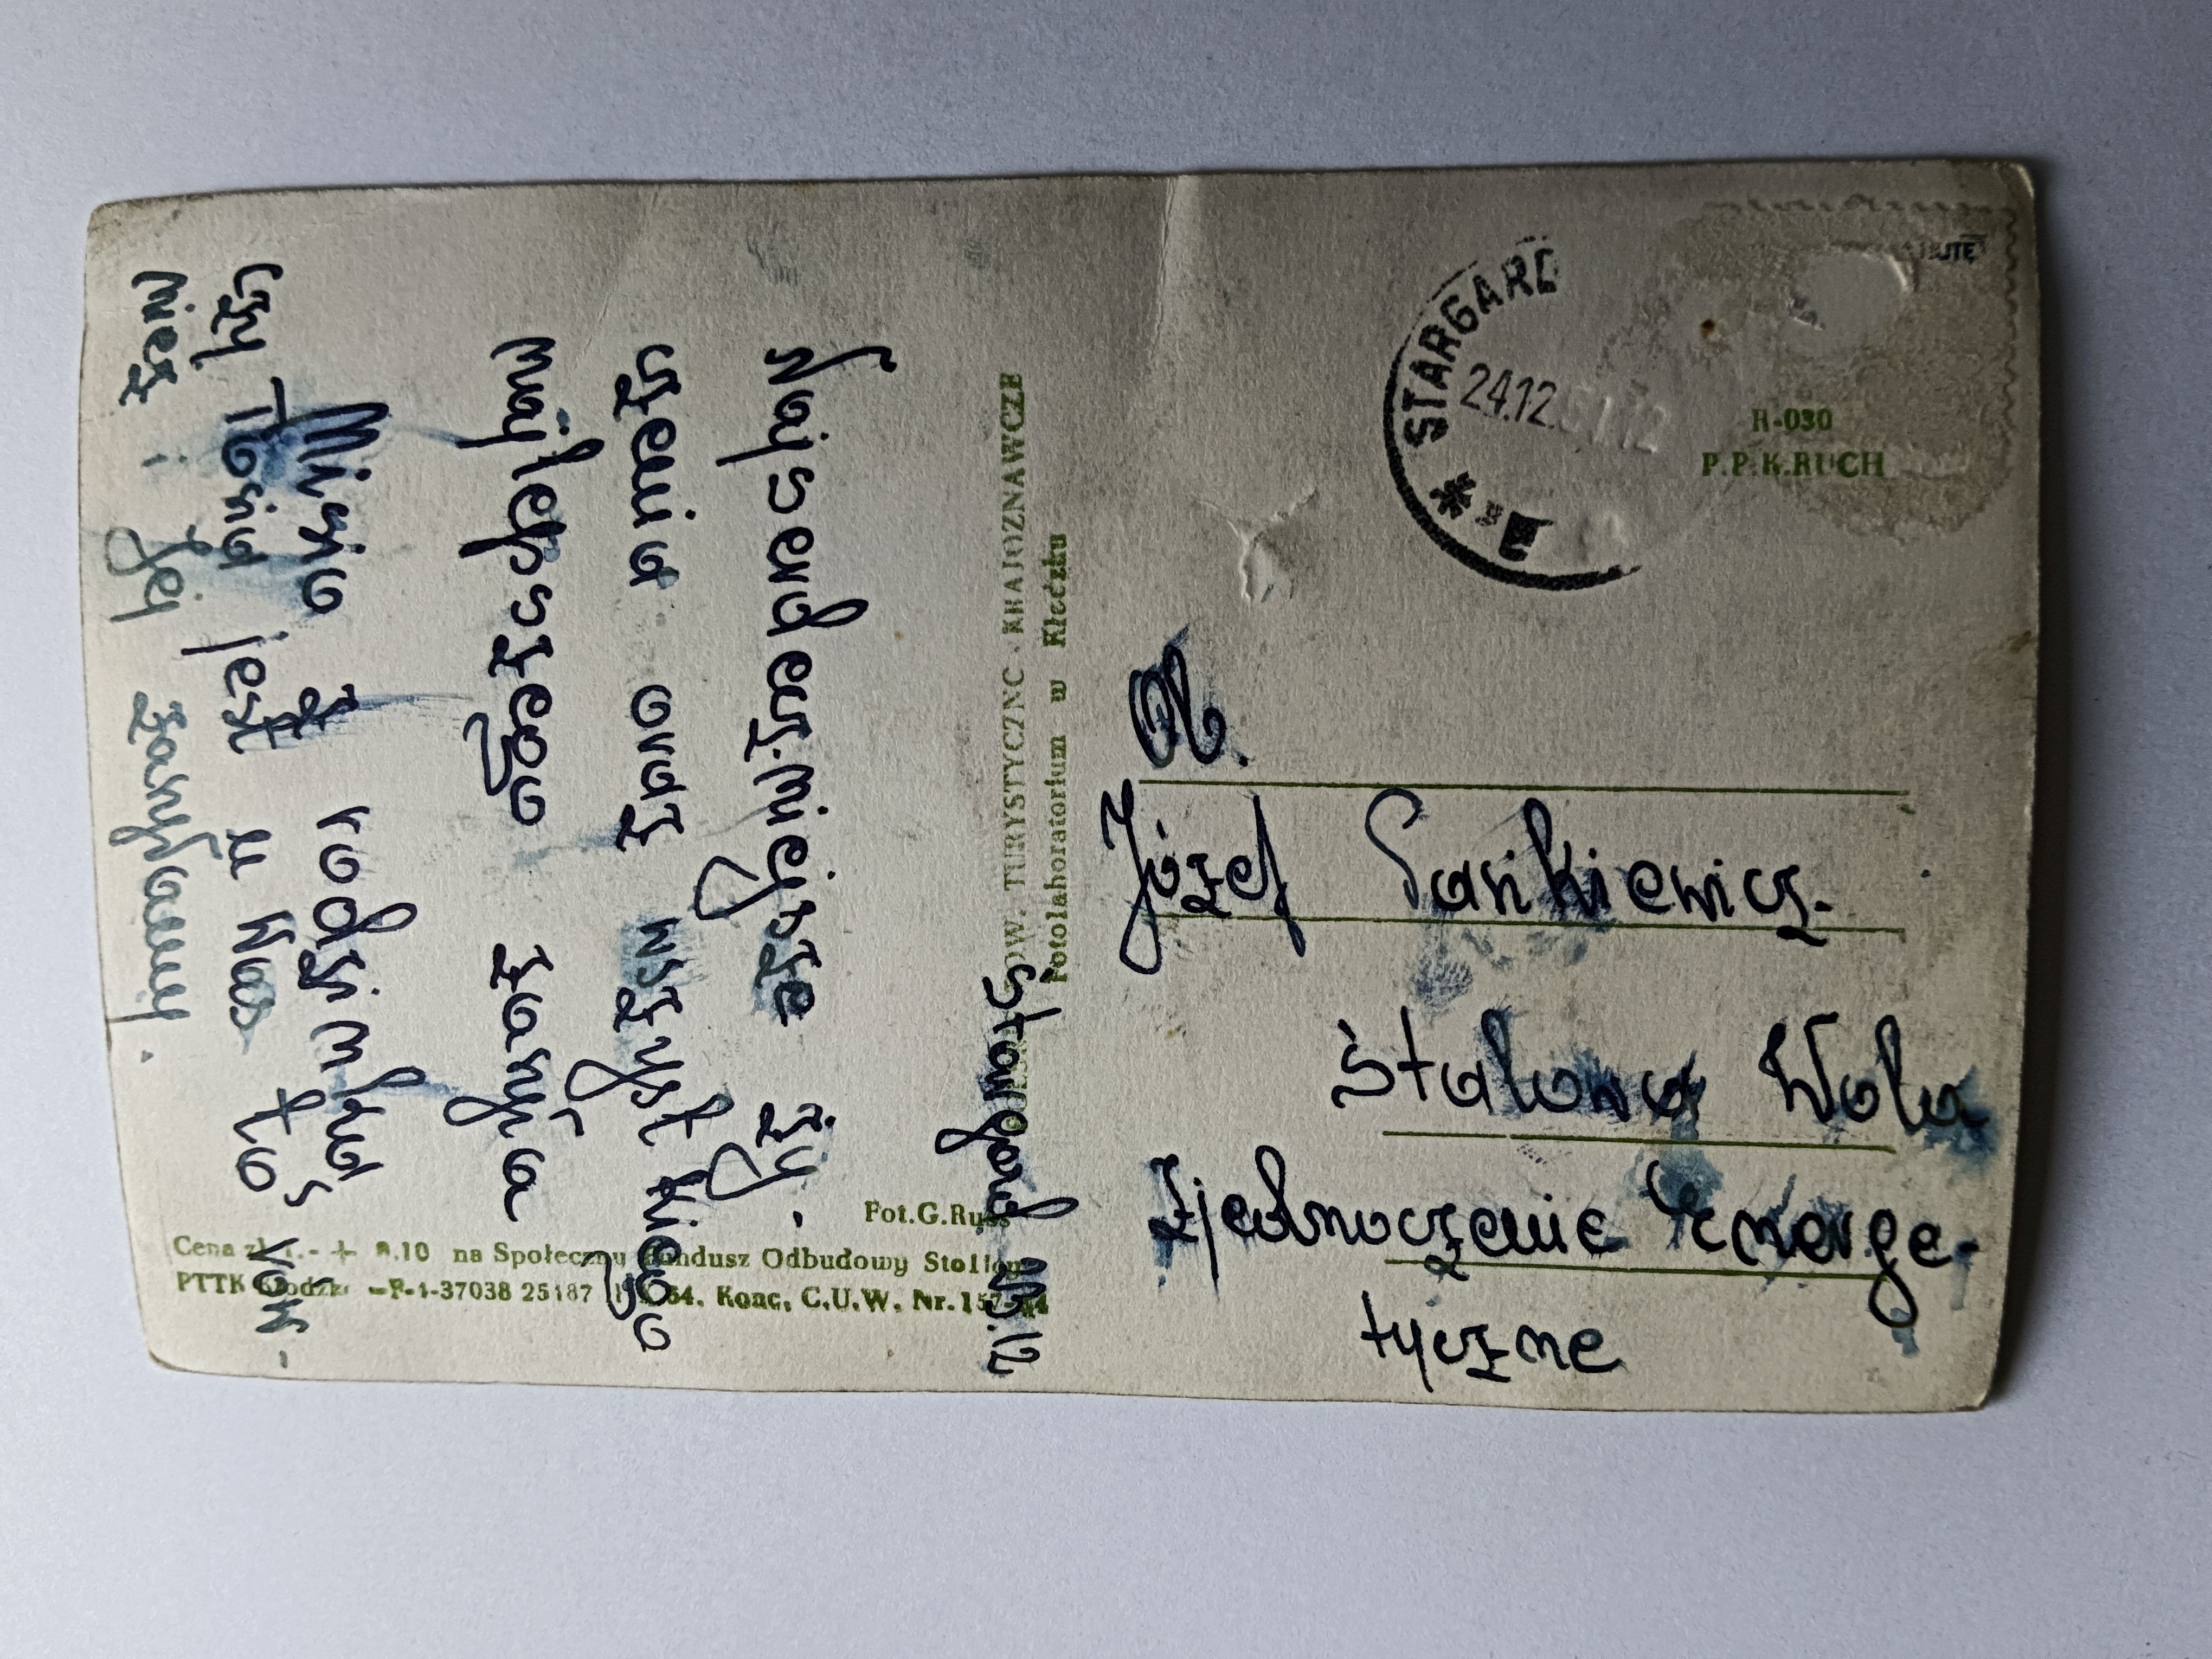 Stargard 23.12
Najserdeczniejsze ży-
czenia oraz wszystkiego
najlepszego zasyła
Misia z rodzinką
Czy Tosia jest u Was to von
niez i jej zasyłamy.
POW. TURYSTYCZNO-KRAJOZNAWCZE
Fotolaboratorium w Kłodzku
Fot.G.Russ
Cena zł 1.- + 0.10 na Społeczny Fundusz Odbudowy Stolicy
PTTK Kłodzko -F-1-37038 25187 54. Konc. C.U.W. Nr. 157-54
STARGARD
24.12
H-030
P.P.K.RUCH
Ob.
Józef Pankiewicz.
Stalowa Wola
Zjednoczenie Energe-
tyczne